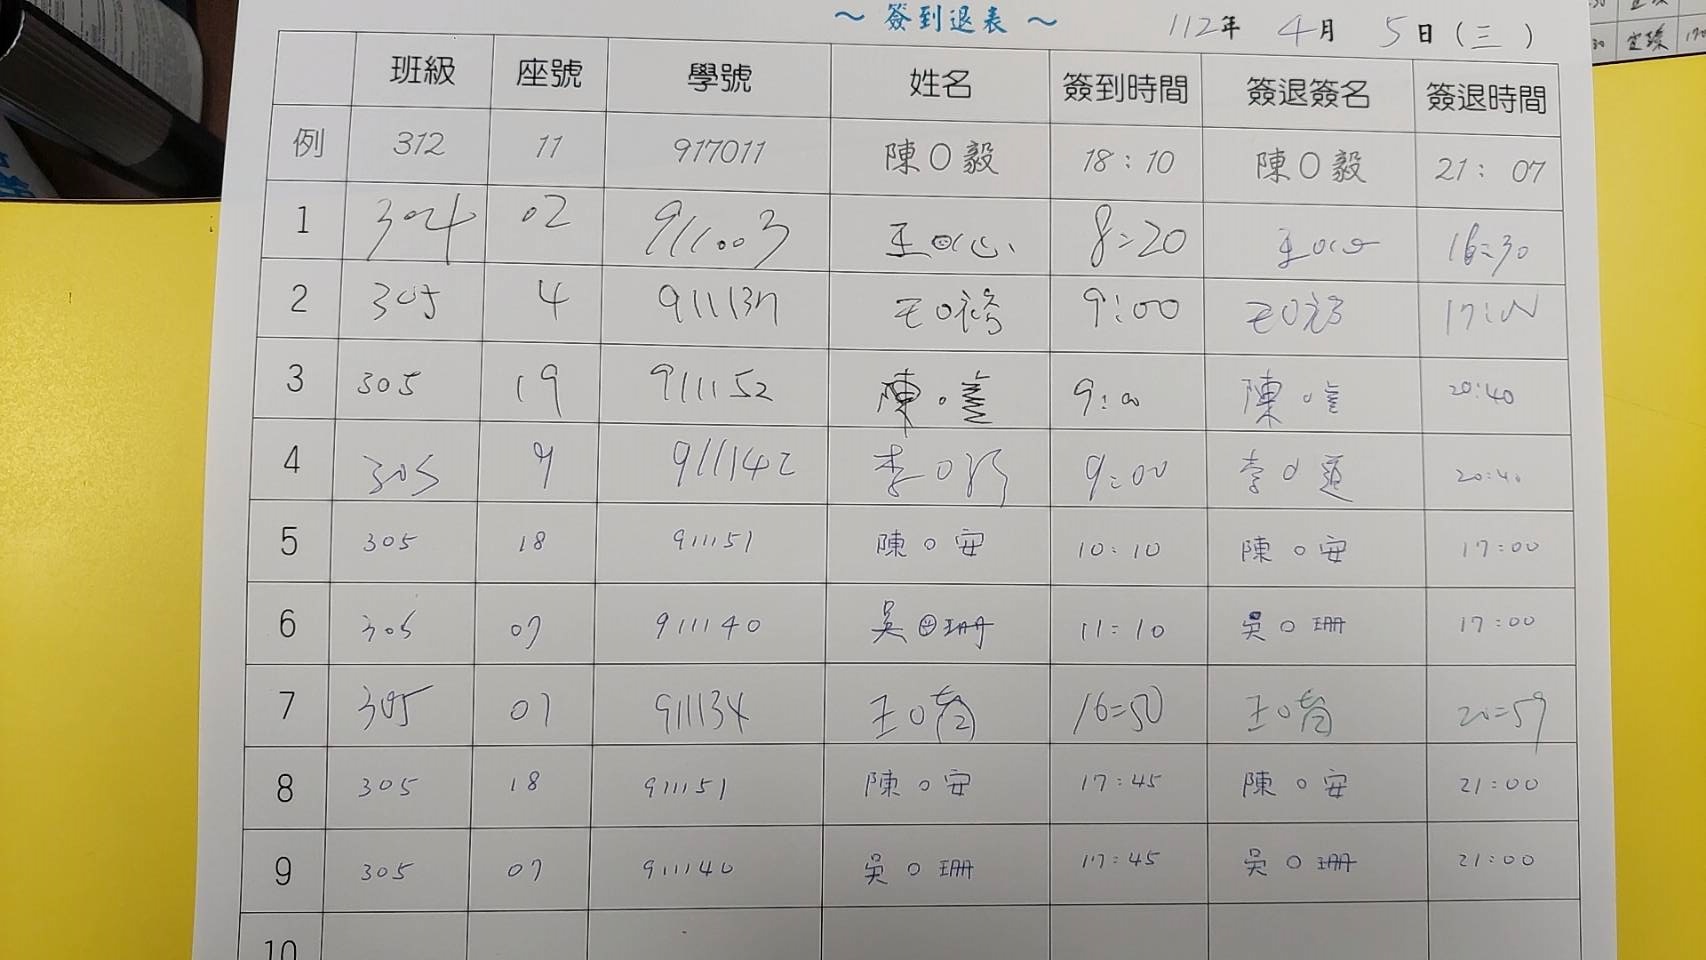 ～ 簽到退表 ～
112年 4月 5日(三)
班級 座號 學號 姓名 簽到時間 簽退簽名 簽退時間
例 312 11 917011 陳〇毅 18:10 陳〇毅 21:07
1 304 02 911003 王〇心 8:20 王〇心 16:30
2 305 4 911137 王〇 9:00 王〇 17:00
3 305 19 911152 陳〇 9:00 陳〇 20:40
4 305 9 911142 李〇 9:00 李〇 20:40
5 305 18 911151 陳〇安 10:10 陳〇安 17:00
6 305 07 911140 吳〇珊 11:10 吳〇珊 17:00
7 305 01 911134 王〇 16:50 王〇 20:59
8 305 18 911151 陳〇安 17:45 陳〇安 21:00
9 305 07 911140 吳〇珊 17:45 吳〇珊 21:00
10